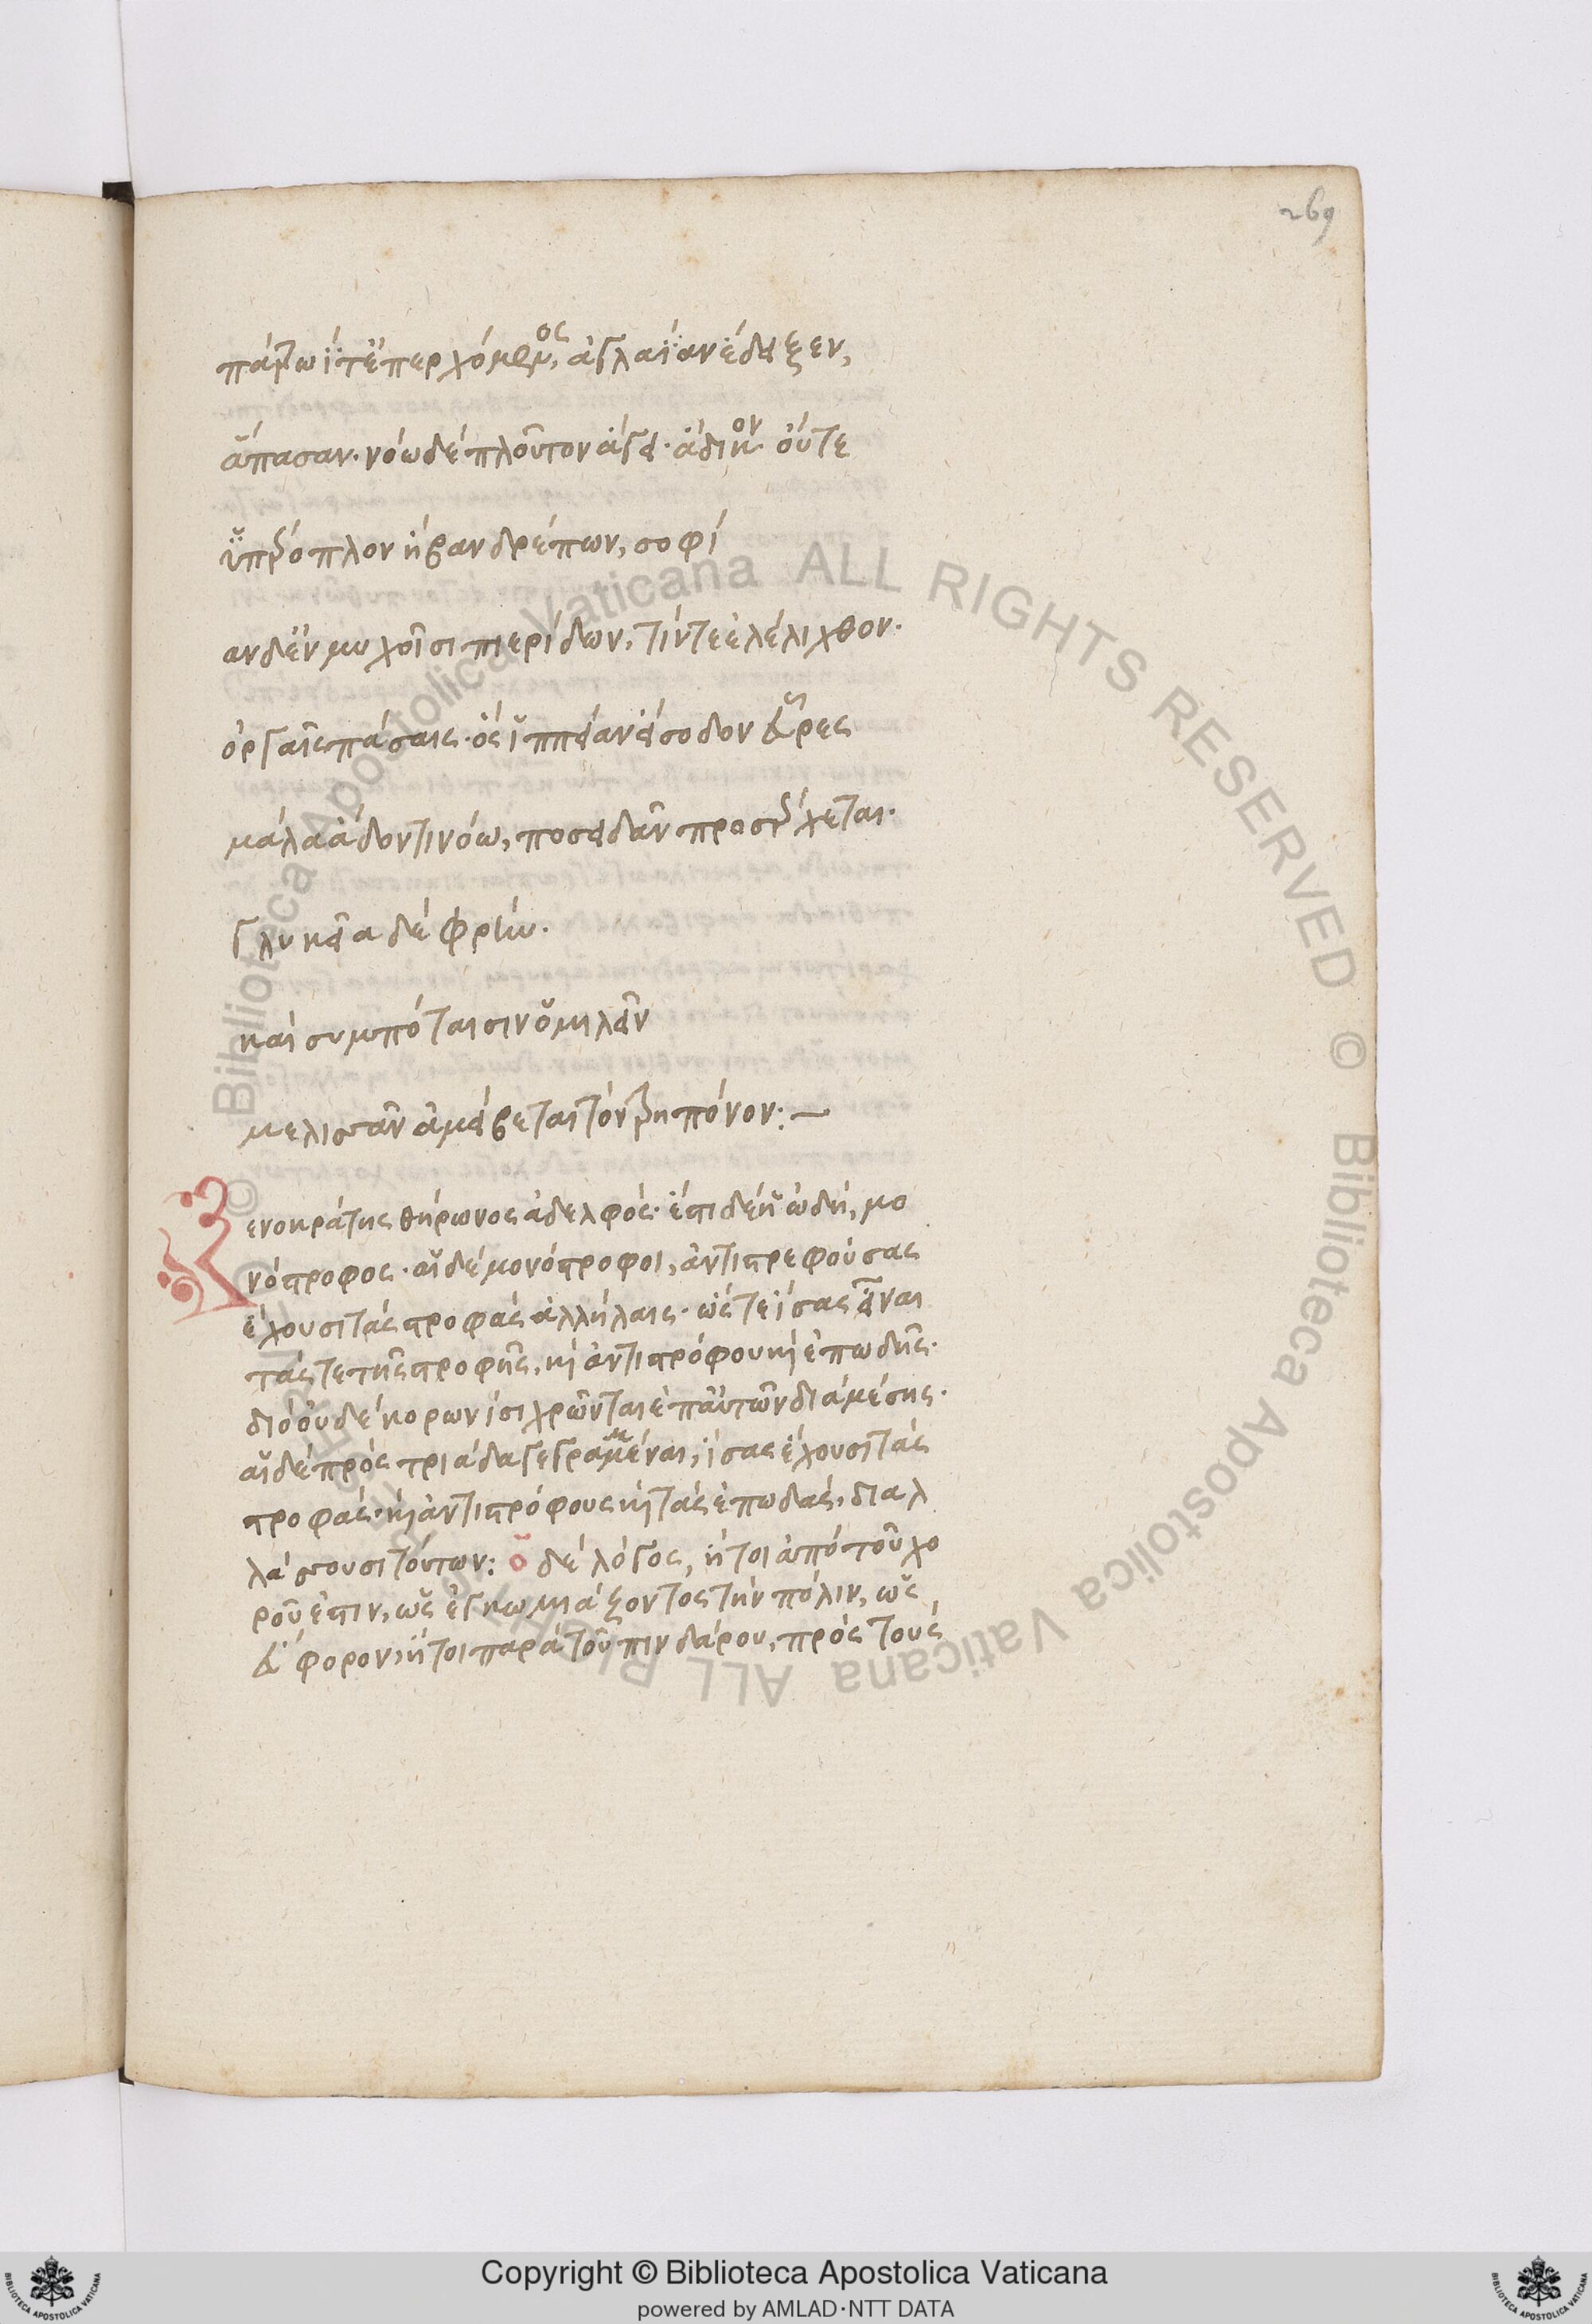 269
πάτρῳ τ' ἐπερχόμενος, ἀγλαΐαν ἔδειξεν,
ἅπασαν. νόῳ δὲ πλοῦτον ἄγει. ἄδικον οὔτε
ὑπέροπλον ἥβαν δρέπων, σοφί
αν δ' ἐν μυχοῖσι πιερίδων, τίν τε ἐλέλιχθον.
ὀργαῖς πάσαις. ὃς ἱππείαν εἴσοδον εὗρες
μάλα ἁδόντι νόῳ, ποσειδᾶν προσέχεται.
γλυκεῖα δὲ φρὴν.
καὶ συμπόταισιν ὁμιλεῖν
μελισσᾶν ἀμείβεται τὸν τρητὸν πόνον:
Ξενοκράτης θήρωνος ἀδελφός. ἔστι δὲ ἡ ὠδὴ, μο
νόστροφος. αἱ δὲ μονόστροφοι, ἀντιστρεφούσας
ἔχουσι τὰς στροφὰς ἀλλήλαις. ὥστε ἴσας εἶναι
τάς τε τῆς στροφῆς, καὶ ἀντιστρόφου καὶ ἐπωδῆς.
διὸ οὐδὲ κορωνίσι χρῶνται ἐπ' αὐτῶν διὰ μέσης.
αἱ δὲ πρὸς τριάδα γεγραμμέναι, ἴσας ἔχουσι τὰς
στροφάς. καὶ ἀντιστρόφους καὶ τὰς ἐπωδάς, διαλ
λάσσουσι τούτων: ὁ δὲ λόγος, ἤτοι ἀπὸ τοῦ χο
ροῦ ἐστιν, ὡς ἐγκωμιάζοντος τὴν πόλιν, ὡς
εὔφορον, ἤτοι παρὰ τοῦ πινδάρου, πρὸς τοὺς
© Biblioteca Apostolica Vaticana ALL RIGHTS RESERVED © Biblioteca Apostolica Vaticana ALL RIGHTS RESERVED
Copyright © Biblioteca Apostolica Vaticana
powered by AMLAD·NTT DATA
BIBLIOTECA APOSTOLICA VATICANA
BIBLIOTECA APOSTOLICA VATICANA